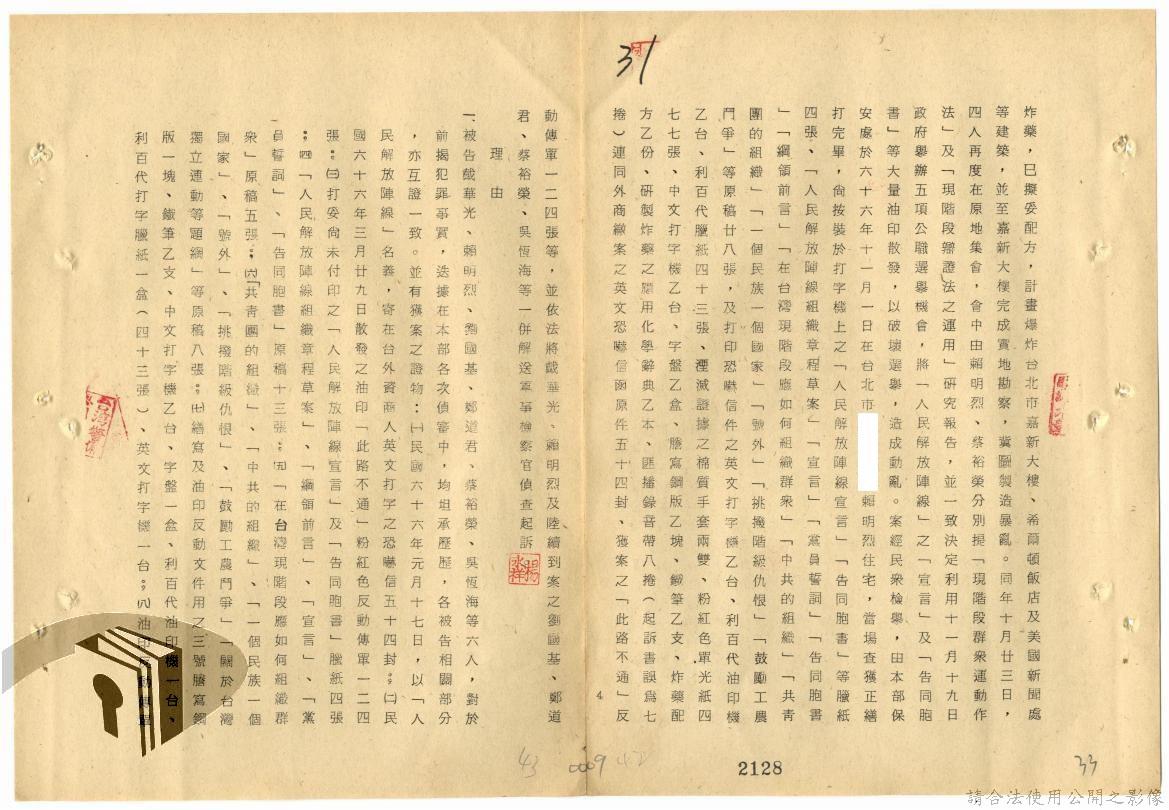 31
炸藥，已擬妥配方，計畫爆炸台北市嘉新大樓、希爾頓飯店及美國新聞處
等建築，並至嘉新大樓完成實地勘察，冀圖製造暴亂。同年十月廿三日，
四人再度在原地集會，會中由賴明烈、蔡裕榮分別提「現階段群衆運動作
法」及「現階段辯證法之運用」研究報告，並一致決定利用十一月十九日
政府舉辦五項公職選舉機會，將「人民解放陣線」之「宣言」及「告同胞
書」等大量油印散發，以破壞選舉，造成動亂。案經民衆檢舉，由本部保
安處於六十六年十一月一日在台北市 賴明烈住宅，當場查獲正繕
打完畢，尙按裝於打字機上之「人民解放陣線宣言」「告同胞書」等臘紙
四張、「人民解放陣線組織章程草案」「宣言」「黨員誓詞」「告同胞書
」「綱領前言」「在台灣現階段應如何組織群衆」「中共的組織」「共靑
團的組織」「一個民族一個國家」「號外」「挑撥階級仇恨」「鼓勵工農
鬥爭」等原稿廿八張，及打印恐嚇信件之英文打字機乙台、利百代油印機
乙台、利百代臘紙四十三張、湮滅證據之棉質手套兩雙、粉紅色單光紙四
七七張、中文打字機乙台、字盤乙盒、謄寫鋼版乙塊、鐵筆乙支、炸藥配
方乙份、硏製炸藥之應用化學辭典乙本、匪播錄音帶八捲（起訴書誤為七
捲）連同外商繳案之英文恐嚇信函原件五十四封、獲案之「此路不通」反
4
動傳單一二四張等，並依法將戴華光、賴明烈及陸續到案之劉國基、鄭道
君、蔡裕榮、吳恆海等一併解送軍事檢察官偵查起訴
理由
一、被告戴華光、賴明烈、劉國基、鄭道君、蔡裕榮、吳恆海等六人，對於
前揭犯罪事實，迭據在本部各次偵審中，均坦承歷歷，各被告相關部分
，亦互證一致。並有獲案之證物：㈠民國六十六年元月十七日，以「人
民解放陣線」名義，寄在台外資商人英文打字之恐嚇信五十四封；㈡民
國六十六年三月廿九日散發之油印「此路不通」粉紅色反動傳單一二四
張；㈢打妥尙未付印之「人民解放陣線宣言」及「告同胞書」臘紙四張
；㈣「人民解放陣線組織章程草案」、「綱領前言」、「宣言」、「黨
員誓詞」、「告同胞書」原稿十三張；㈤「在台灣現階段應如何組織群
衆」原稿五張；㈥「共靑團的組織」、「中共的組織」、「一個民族一個
國家」、「號外」、「挑撥階級仇恨」、「鼓勵工農鬥爭」「關於台灣
獨立運動等題綱」等原稿八張；㈦繕寫及油印反動文件用之三號謄寫鋼
版一塊、鐵筆乙支、中文打字機乙台、字盤一盒、利百代油印機一台、
利百代打字臘紙一盒（四十三張）、英文打字機一台；㈧油印反動傳單
43 0009 42
2128
33
請合法使用公開之影像